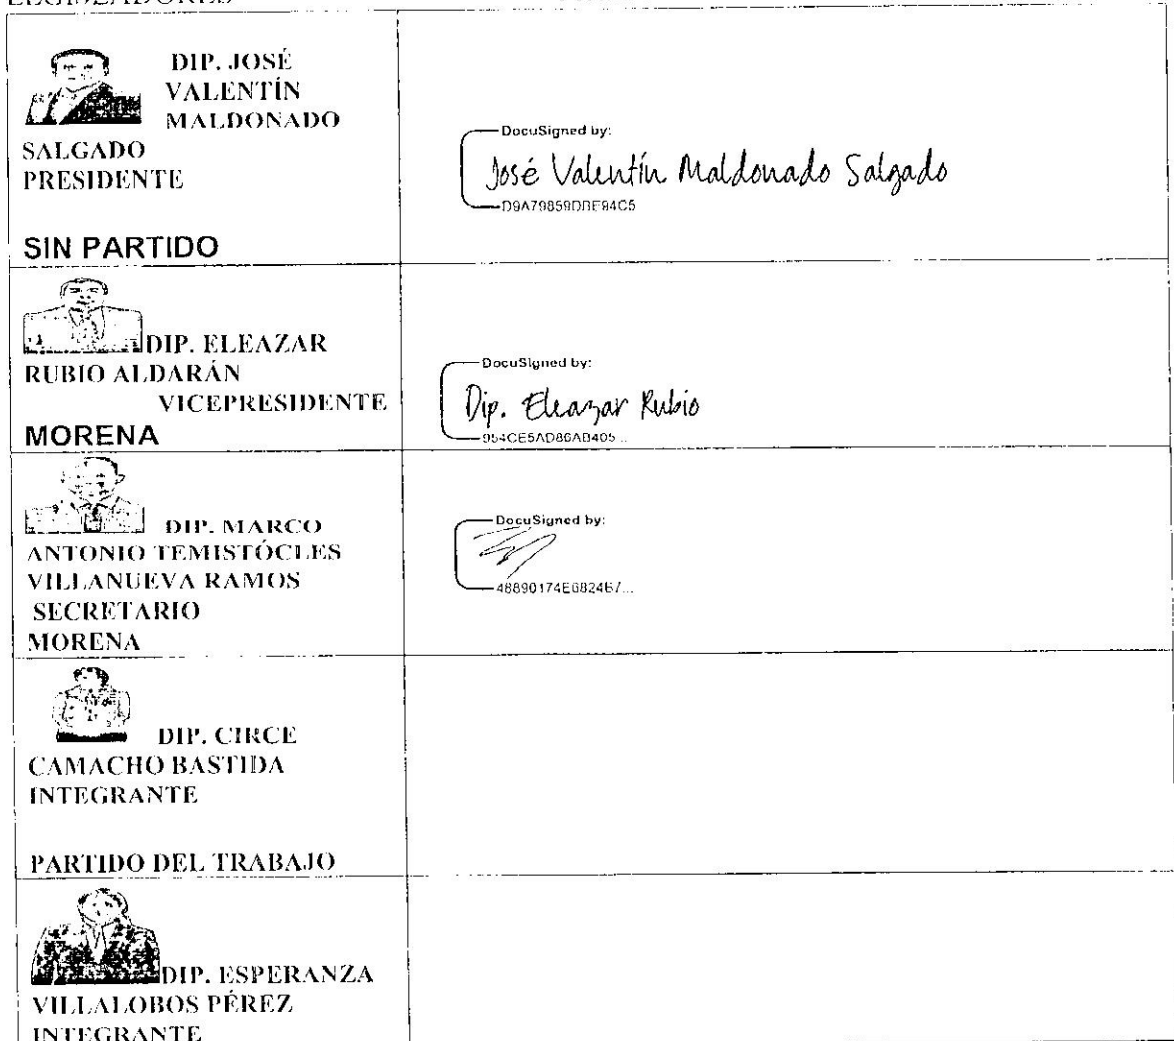 DIP. JOSÉ
VALENTÍN
MALDONADO
SALGADO
PRESIDENTE
SIN PARTIDO
DocuSigned by:
José Valentín Maldonado Salgado
DIP. ELEAZAR
RUBIO ALDARÁN
VICEPRESIDENTE
MORENA
DocuSigned by:
Dip. Eleazar Rubio
DIP. MARCO
ANTONIO TEMISTÓCLES
VILLANUEVA RAMOS
SECRETARIO
MORENA
DocuSigned by:
DIP. CIRCE
CAMACHO BASTIDA
INTEGRANTE
PARTIDO DEL TRABAJO
DIP. ESPERANZA
VILLALOBOS PÉREZ
INTEGRANTE